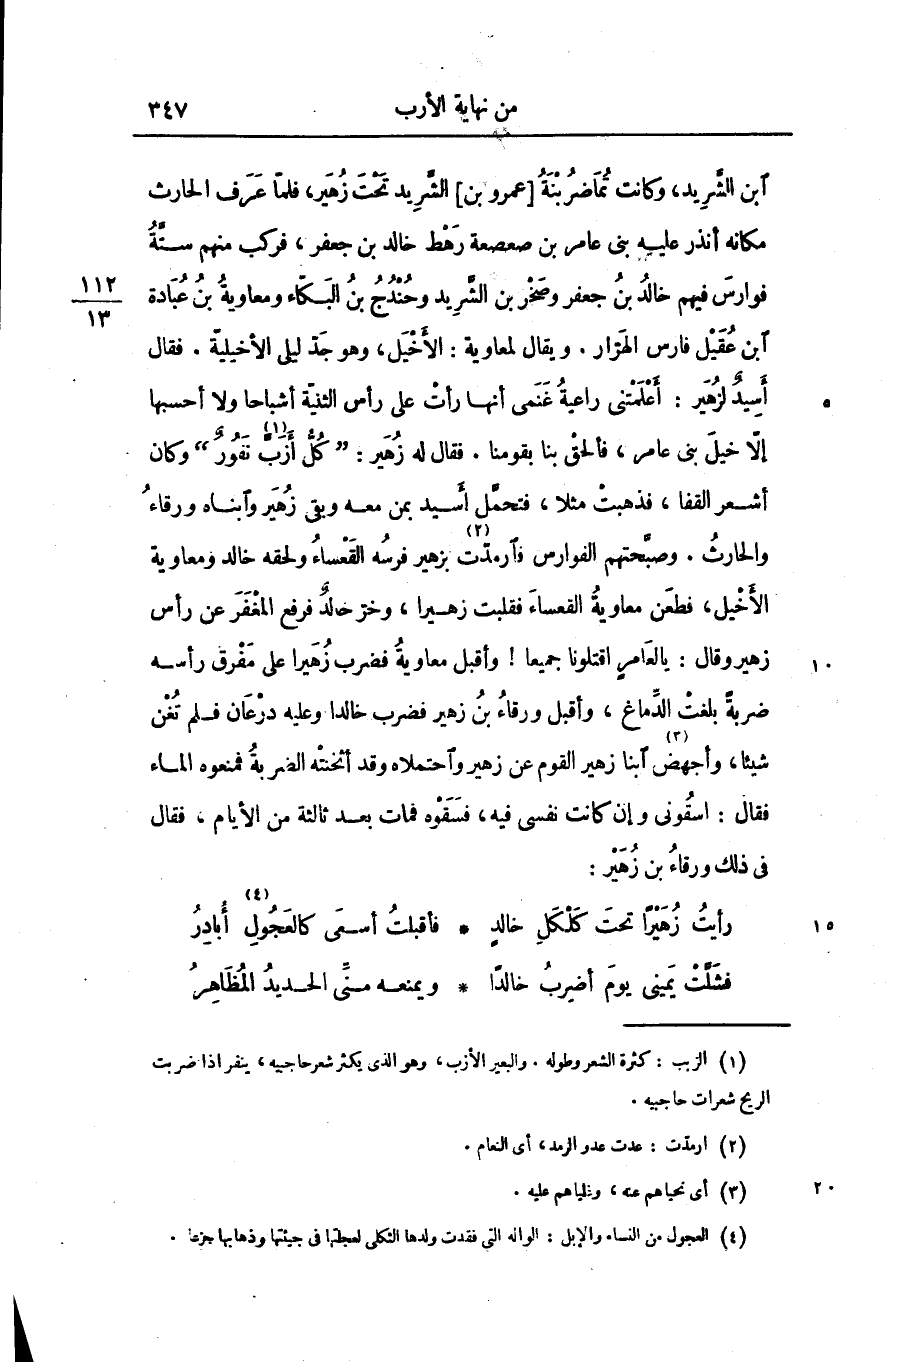 من نهاية الأرب ٣٤٧
ٱبن الشَّرِيد، وكانت تُمَاضرُ بْنَةُ [عمرو بن] الشَّرِيد تَحْتَ زُهَير، فلمّا عَرَف الحارث
مكانه أنذر عليه بنى عامر بن صعصعة رَهْط خالد بن جعفر، فركب منهم ستَّةُ
فوارسَ فيهم خالدُ بنُ جعفر وصَخْر بن الشَّرِيد وحُنْدُجُ بنُ البَكّاء ومعاويةُ بنُ عُبَادة
١١٢
١٣
ٱبن عُقَيْل فارس الهَرّار. ويقال لمعاوية: الأَخْيَل، وهو جَدّ ليلى الأخيليّة. فقال
أَسِيدٌ لزُهَير: أَعْلَمَتْنى راعيةُ غَنَمى أنها رأتْ على رأس الثنيّة أشباحا ولا أحسبها ٥
إلّا خيلَ بنى عامر، فألحقْ بنا بقومنا. فقال له زُهَير: "كُلُّ أَزَبَّ نَفُورٌ" (١) وكان
أشعر القفا، فذهبتْ مثلا، فتحمَّل أَسيد بمن معه وبقى زُهَير وٱبناه ورقاءُ
والحارثُ. وصبَّحتهم الفوارس فٱرمدّت (٢) بزهير فرسُه القَعْساءُ ولحقه خالد ومعاوية
الأَخْيل، فطَعَن معاويةُ القعساءَ فقلبت زهيرا، وخرّ خالدٌ فرفع المغْفَرَ عن رأس
زهير وقال: يالعَامرٍ اقتلونا جميعا! وأقبل معاويةُ فضرب زُهَيرا على مَفْرِق رأسه ١٠
ضربةً بلغتْ الدِّماغ، وأقبل ورقاءُ بنُ زهير فضرب خالدا وعليه درْعَان فلم تُغْن
شيئا، وأجهض (٣) ٱبنا زهير القوم عن زهير وٱحتملاه وقد أثخنتْه الضربةُ فمنعوه الماء
فقال: اسقُونى وإن كانت نفسى فيه، فسَقَوْه فمات بعد ثالثة من الأيام، فقال
فى ذلك ورقاءُ بن زُهَيْر:
رأيتُ زُهَيْرًا تحتَ كَلْكَلِ خالدٍ * فأقبلتُ أسعَى كالعَجُولِ (٤) أُبادِرُ ١٥
فشَلَّتْ يَمينى يومَ أضرِبُ خالدًا * ويمنعه منِّى الحديدُ المُظَاهِرُ
(١) الزبب: كثرة الشعر وطوله. والبعير الأزب، وهو الذى يكثر شعر حاجبيه، ينفر اذا ضربت
الريح شعرات حاجبيه.
(٢) ارمدّت: عدت عدو الرمد، أى النعام.
(٣) أى نحياهم عنه، وغلباهم عليه. ٢٠
(٤) العجول من النساء والإبل: الواله التى فقدت ولدها الثكلى لعجلتها فى جيئتها وذهابها جزعا.